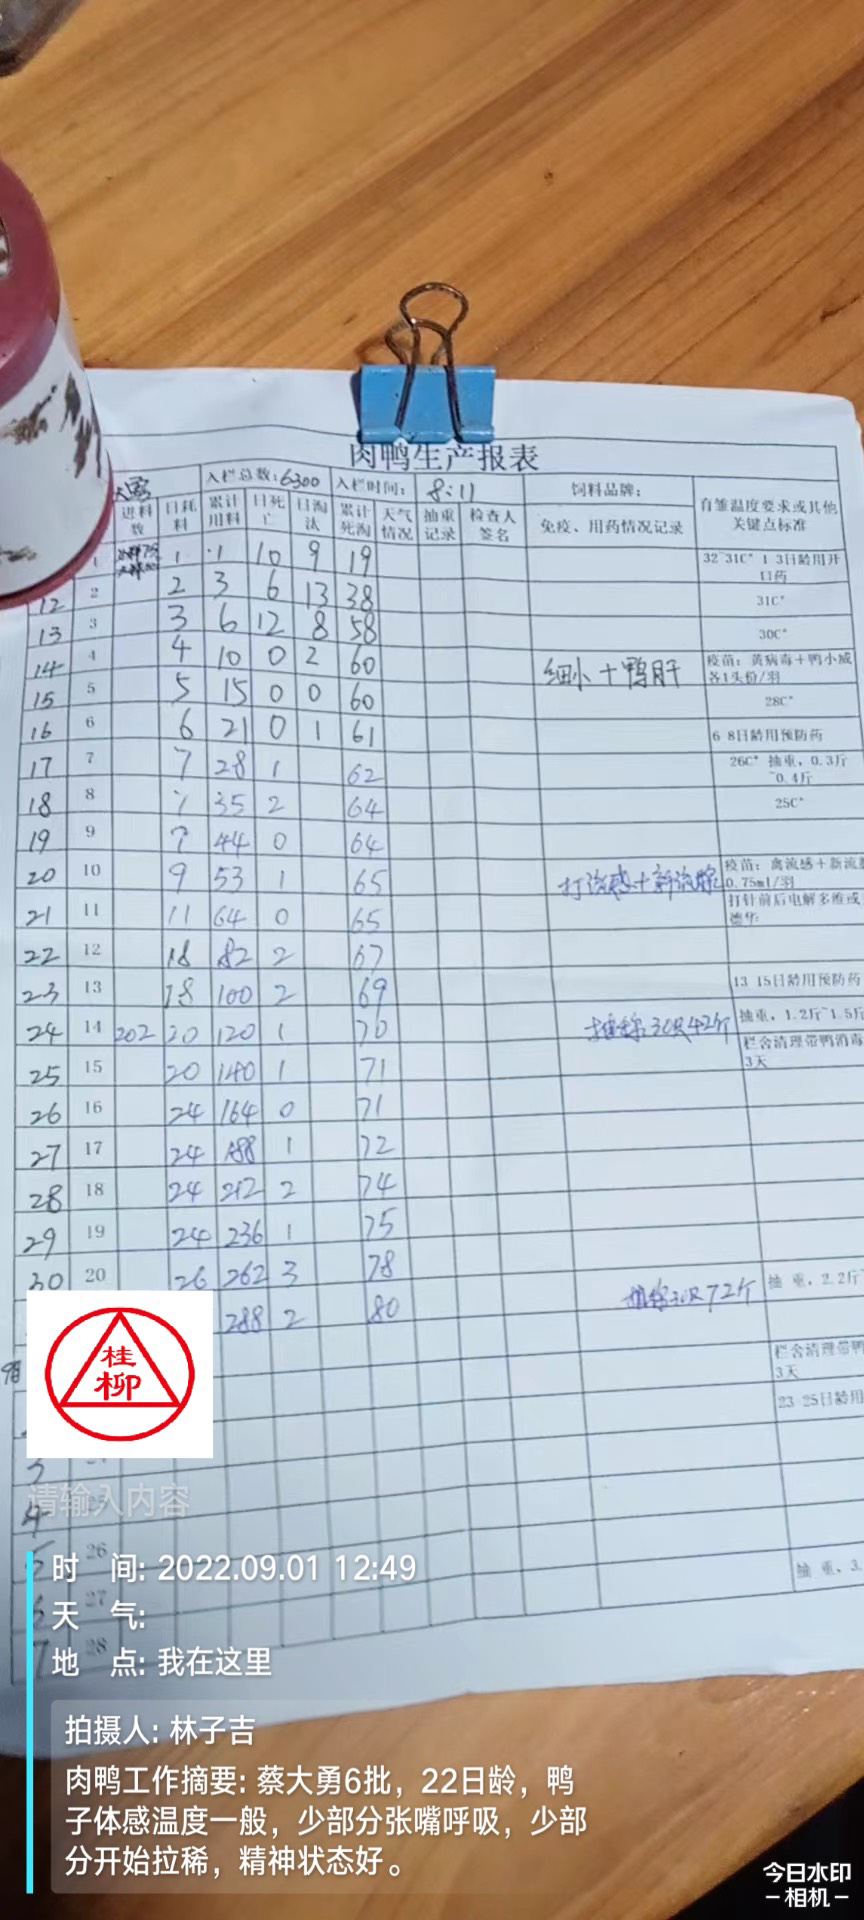 肉鸭生产报表
入栏总数:6300 入栏时间: 8:11 饲料品牌: 育雏温度要求或其他关键点标准
进料数 日耗料 累计用料 日死亡 日淘汰 累计死淘 天气情况 抽重记录 检查人签名 免疫、用药情况记录
1 1 1 10 9 19 32~31C° 1 3日龄用开口药
12 2 2 3 6 13 38 31C°
13 3 3 6 12 8 58 30C°
14 4 4 10 0 2 60 细小+鸭肝 疫苗: 黄病毒+鸭小威各1头份/羽
15 5 5 15 0 0 60 28C°
16 6 6 21 0 1 61 6 8日龄用预防药
17 7 7 28 1 62 26C° 抽重, 0.3斤~0.4斤
18 8 7 35 2 64 25C°
19 9 44 0 64
20 10 9 53 1 65 打流感+新流腺 疫苗: 禽流感+新流 0.75ml/羽
21 11 11 64 0 65 打针前后电解多维或 德华
22 12 18 82 2 67
23 13 18 100 2 69 13 15日龄用预防药
24 14 202 20 120 1 70 抽称30只42斤 抽重, 1.2斤~1.5斤
25 15 20 140 1 71 栏舍清理带鸭消毒3天
26 16 24 164 0 71
27 17 24 188 1 72
28 18 24 212 2 74
29 19 24 236 1 75
30 20 26 262 3 78
288 2 80 抽称30只72斤 抽 重, 2.2斤
栏舍清理带鸭
3天
23 25日龄用
3
4
5 26
6 27 抽 重, 3.
7 28
桂柳
请输入内容
时 间: 2022.09.01 12:49
天 气:
地 点: 我在这里
拍摄人: 林子吉
肉鸭工作摘要: 蔡大勇6批，22日龄，鸭
子体感温度一般，少部分张嘴呼吸，少部
分开始拉稀，精神状态好。
今日水印
-相机-